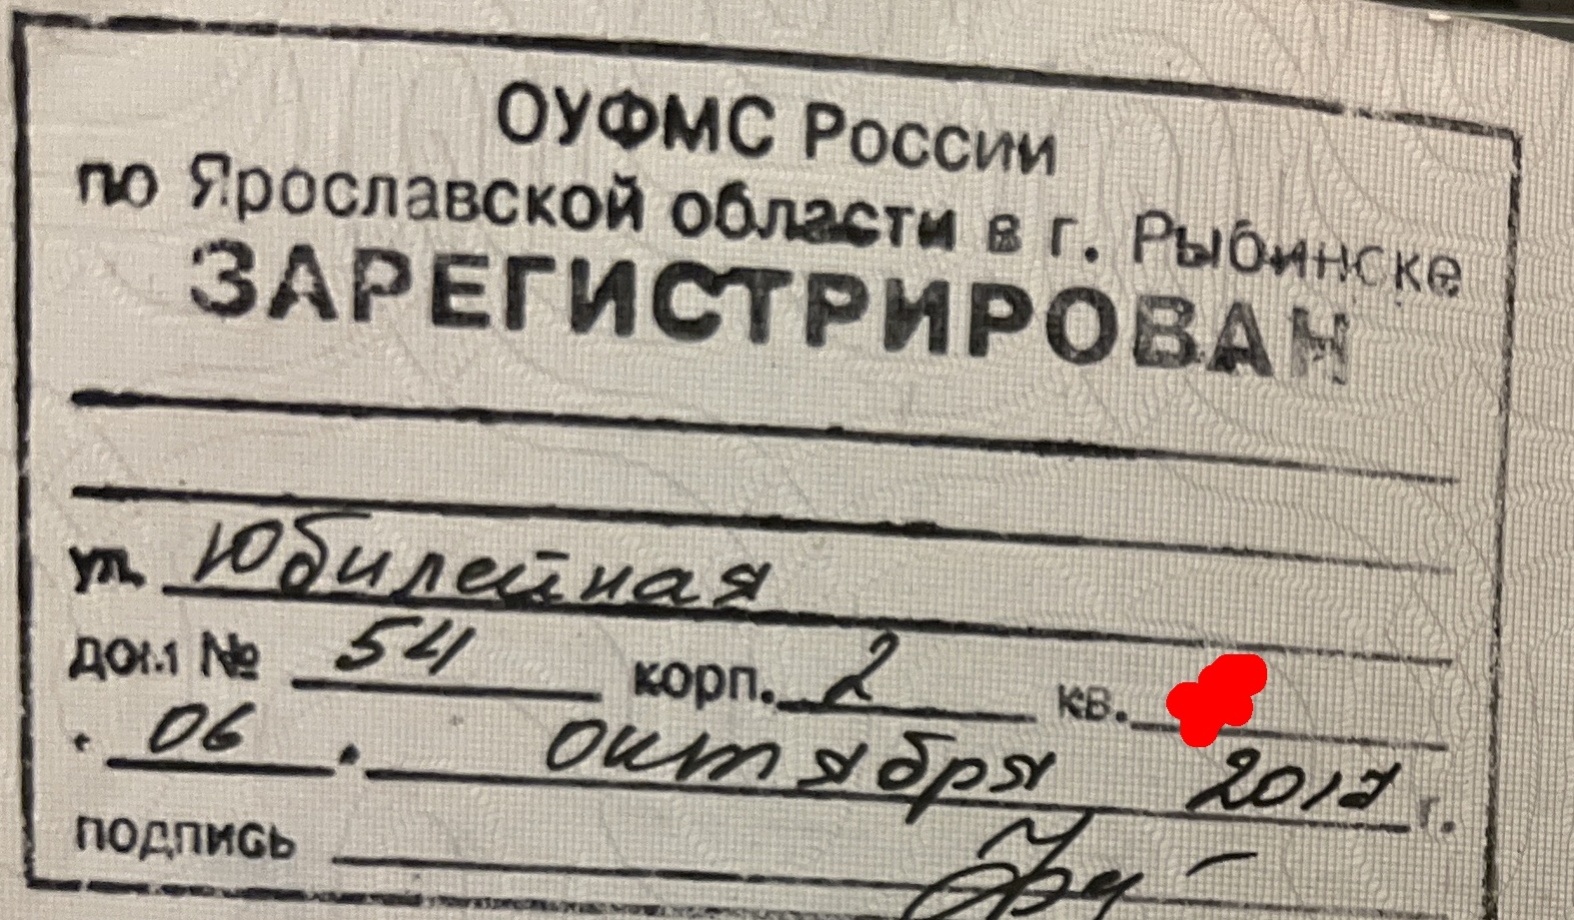 ОУФМС России
по Ярославской области в г. Рыбинске
ЗАРЕГИСТРИРОВАН
ул. Юбилейная
дом № 54 корп. 2 кв.
06. октября 2017 г.
подпись